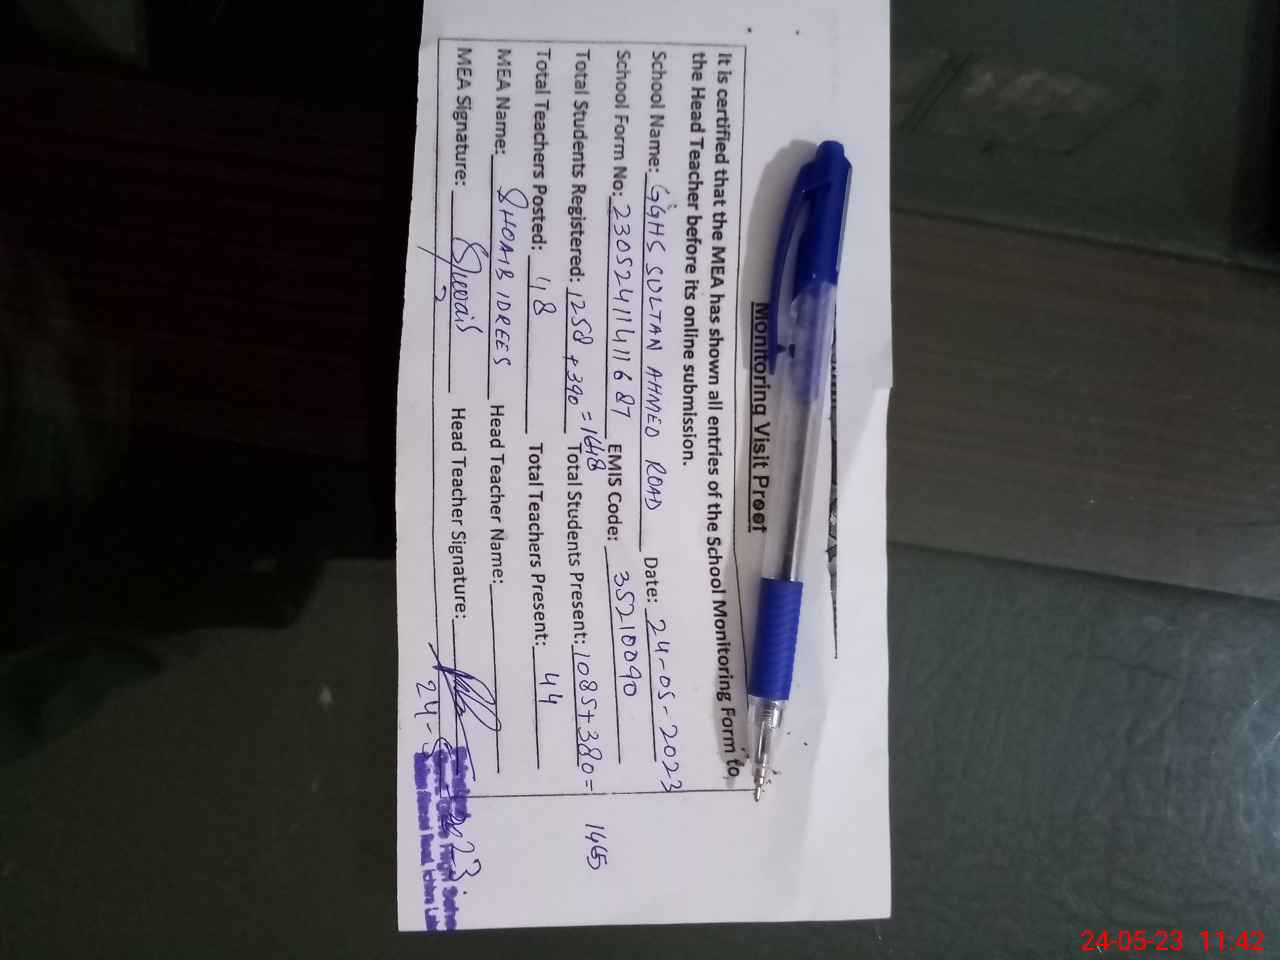 Monitoring Visit Proof
It is certified that the MEA has shown all entries of the School Monitoring Form to
the Head Teacher before its online submission.
School Name: GGHS SULTAN AHMED ROAD Date: 24-05-2023
School Form No: 23052411411687 EMIS Code: 35210090
Total Students Registered: 1258 + 390 = 1648 Total Students Present: 1085+380= 1465
Total Teachers Posted: 48 Total Teachers Present: 44
MEA Name: SHOAIB IDREES Head Teacher Name:
MEA Signature: Head Teacher Signature:
Girls High
Ahmed Road, Ichhra
24-05-23 11:42